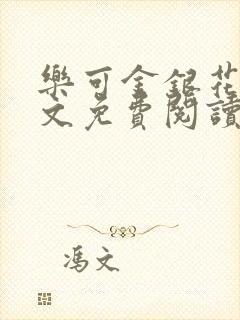 樂可金銀花
文免費閱讀
馮文